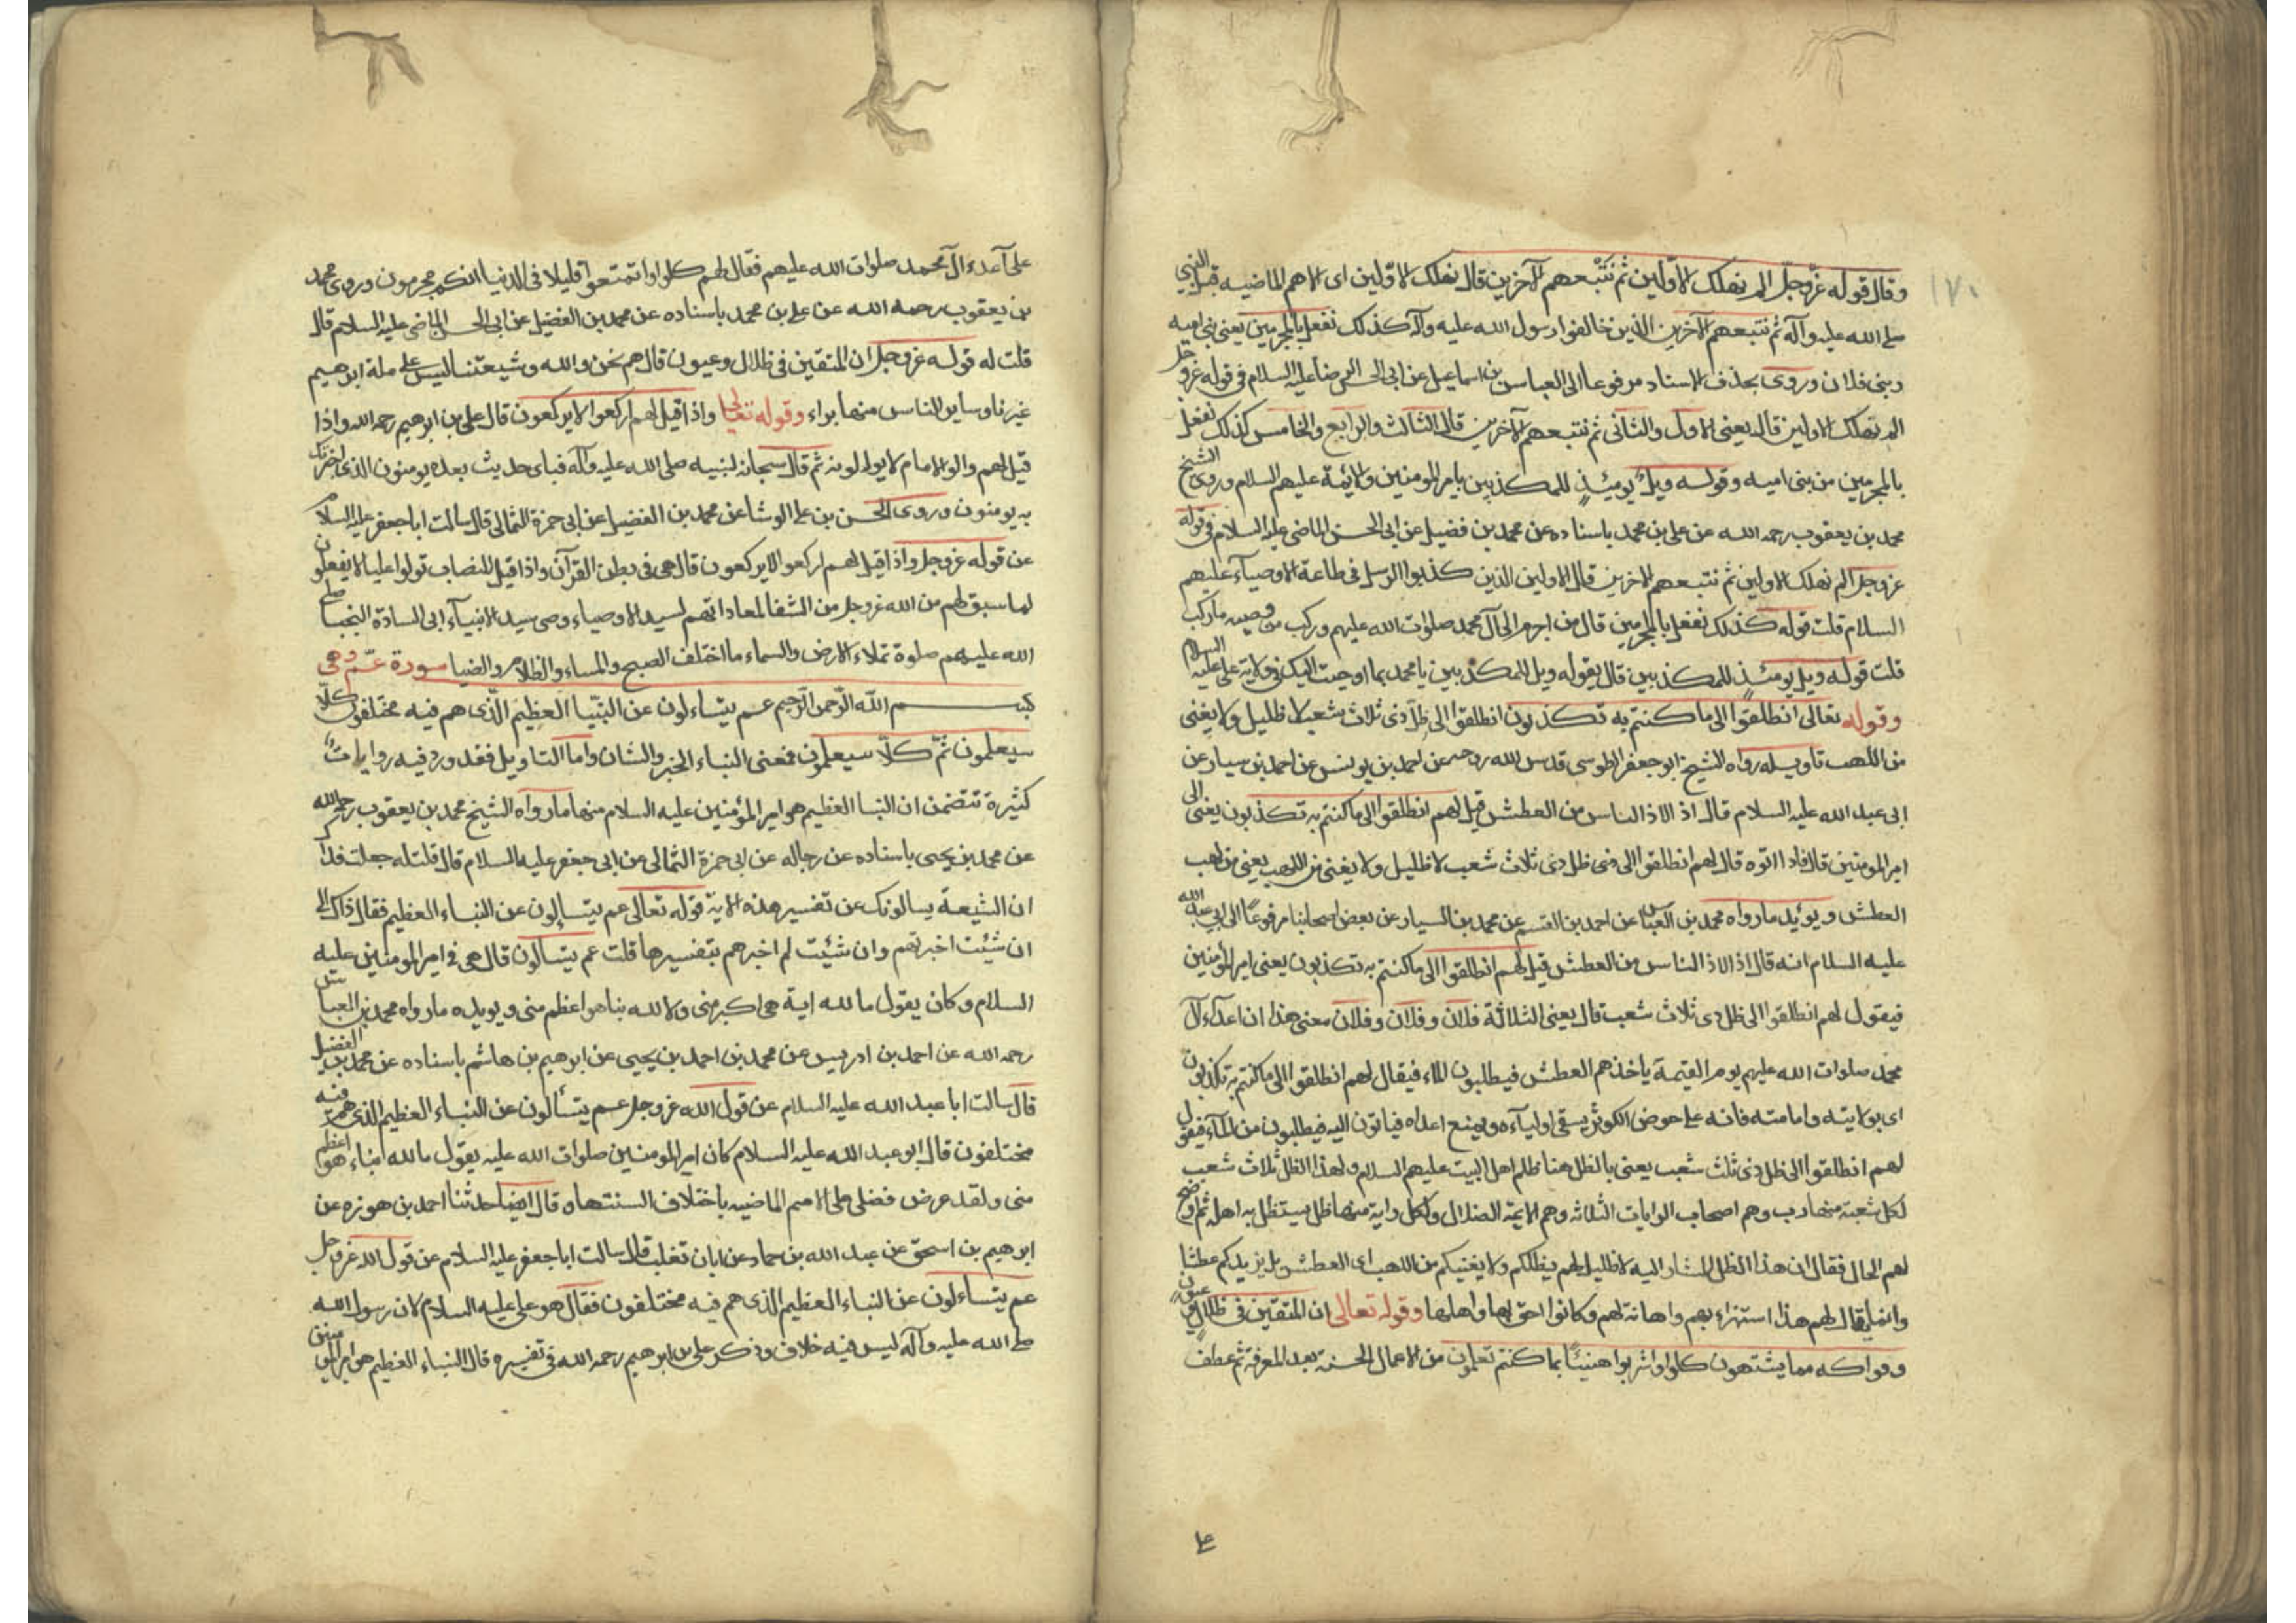 ١٧١
وقال قوله عزّوجلّ الم نهلك الاوّلين ثم نتبعهم الآخرين قال نهلك الاوّلين اى الامم الماضيه قبل النبي
صلى الله عليه وآله ثم نتبعهم الآخرين الذين خالفوا رسول الله عليه وآله كذلك نفعل بالمجرمين يعنى بنى اميه
وبنى فلان وروى بحذف الاسناد مرفوعا الى العباس بن اسماعيل عن ابى الحسن الرضا عليه السلام فى قوله عزوجل
الم نهلك الاولين قال يعنى الاول والثانى ثم نتبعهم الآخرين قال الثالث والرابع والخامس كذلك نفعل
بالمجرمين من بنى اميه وقوله ويل يومئذ للمكذبين بامير المومنين والائمة عليهم السلام وروى الشيخ
محمد بن يعقوب رحمه الله عن على بن محمد باسناده عن محمد بن فضيل عن ابى الحسن الماضى عليه السلام فى قوله
عزوجل الم نهلك الاولين ثم نتبعهم الاخرين قال الاولين الذين كذبوا الرسل فى طاعة الاوصيآء عليهم
السلام قلت قوله كذلك نفعل بالمجرمين قال من اجرم الى آل محمد صلوات الله عليهم وركب من وصيه ما ركب
قلت قوله ويل يومئذ للمكذبين قال يقوله ويل للمكذبين يا محمد بما اوحيت اليك فى ولاية على عليه السلام
وقوله تعالى انطلقوا الى ما كنتم به تكذبون انطلقوا الى ظل ذى ثلاث شعب لا ظليل ولا يغنى
من اللهب تاويله رواه الشيخ ابو جعفر الطوسى قدس الله روحه عن احمد بن يونس عن احمد بن سيار عن
ابى عبد الله عليه السلام قال اذ الاذ الناس من العطش قيل لهم انطلقوا الى ما كنتم به تكذبون يعنى الى
امير المومنين قال فاذا اتوه قال لهم انطلقوا الى ظل ذى ثلاث شعب لا ظليل ولا يغنى من اللهب يعنى من لهب
العطش ويؤيد ما رواه محمد بن العباس عن احمد بن القسم عن محمد بن السيار عن بعض اصحابنا مرفوعًا الى ابى عبد الله
عليه السلام انه قال اذ الاذ الناس من العطش قيل لهم انطلقوا الى ما كنتم به تكذبون يعنى امير المؤمنين
فيقول لهم انطلقوا الى ظل ذى ثلاث شعب قال يعنى الثلاثة فلان وفلان وفلان معنى هذا ان اعدآء آل
محمد صلوات الله عليهم يوم القيمة ياخذهم العطش فيطلبون الماء فيقال لهم انطلقوا الى ما كنتم به تكذبون
اى بولايته وامامته فانه على حوض الكوثر يسقى اوليآءه ويمنع اعداه فياتون اليه فيطلبون من المآء فيقول
لهم انطلقوا الى ظل ذى ثلث شعب يعنى بالظل هنا ظلم اهل البيت عليهم السلام ولهذا الظل ثلاث شعب
لكل شعبة منها رب وهم اصحاب الرايات الثلاثه وهم الايمة الضلال ولكل راية منها ظل يستظل به اهله ثم اوضح
لهم الحال فقال ان هذا الظل المشار اليه لا ظليل لهم يظللكم ولا يغنيكم من اللهب اى العطش بل يزيدكم عطشا
وانما يقال لهم هذا استهزاء بهم واهانة لهم وكانوا احق بها واهلها وقوله تعالى ان المتقين فى ظلال وعيون
وفواكه مما يشتهون كلوا واشربوا هنيئًا بما كنتم تعملون من الاعمال الحسنة بعد المعرفة ثم عطف
على
على آعداء آل محمد صلوات الله عليهم فقال لهم كلوا واتمتعوا قليلا فى الدنيا انكم مجرمون وروى محمد
بن يعقوب رحمه الله عن على بن محمد باسناده عن محمد بن الفضيل عن ابى الحسن الماضى عليه السلام قال
قلت له قوله عزوجل ان المتقين فى ظلال وعيون قال هم نحن والله وشيعتنا ليس على ملة ابرهيم
غيرنا وساير الناس منها براء وقوله تعالى واذا قيل لهم اركعوا لا يركعون قال على بن ابرهيم رحمه الله واذا
قيل لهم والوا الامام لا يوالونه ثم قال سبحانه لنبيه صلى الله عليه وآله فباى حديث بعده يومنون الذى اخبرتك
به يومنون وروى الحسن بن على الوشا عن محمد بن الفضيل عن ابى حمزة الثمالى قال سالت ابا جعفر عليه السلام
عن قوله عزوجل واذا قيل لهم اركعوا لا يركعون قال هى فى بطن القرآن واذا قيل للنصاب تولوا عليا لا يفعلون
لما سبق لهم من الله عزوجل من الشقا لمعاداتهم لسيد الاوصياء وصى سيد الانبيآء ابى السادة النجبا صلى
الله عليهم صلوة تملاء الارض والسماء ما اختلف الصبح والمساء والظلام والضيا سورة عمّ وهى
بسم الله الرّحمن الرّحيم عم يتساءلون عن النّبا العظيم الّذى هم فيه مختلفون كلّا
سيعلمون ثمّ كلّا سيعلمون فمعنى النباء الخبر والشان واما التاويل فقد ورد فيه روايات
كثيرة تتضمن ان النبا العظيم هو امير المؤمنين عليه السلام منها ما رواه الشيخ محمد بن يعقوب رحمه الله
عن محمد بن يحيى باسناده عن رجاله عن ابى حمزة الثمالى عن ابى جعفر عليه السلام قال قلت له جعلت فداك
ان الشيعة يسالونك عن تفسير هذه الاية قوله تعالى عم يتسالون عن النباء العظيم فقال ذاك الى
ان شئت اخبرتهم وان شئت لم اخبرهم بتفسيرها قلت عم يتسالون قال هى فى امير المومنين عليه
السلام وكان يقول ما لله اية هى اكبر منى ولا لله نبا هو اعظم منى ويويده ما رواه محمد بن العباس
رحمه الله عن احمد بن ادريس عن محمد بن احمد بن يحيى عن ابرهيم بن هاشم باسناده عن محمد بن الفضيل
قال سالت ابا عبد الله عليه السلام عن قول الله عزوجل عم يتسألون عن النباء العظيم الذى هم فيه
مختلفون قال ابو عبد الله عليه السلام كان امير المومنين صلوات الله عليه يقول ما لله انباء هو اعظم
منى ولقد عرض فضلى على الامم الماضيه باختلاف السنتها وقال ايضا حدثنا احمد بن هوزه عن
ابرهيم بن اسحق عن عبد الله بن حماد عن ابان تغلب قال سالت ابا جعفر عليه السلام عن قول الله عزوجل
عم يتسآءلون عن النباء العظيم الذى هم فيه مختلفون فقال هو على عليه السلام لان رسول الله
صلى الله عليه وآله ليس فيه خلاف وذكر على بن ابرهيم رحمه الله فى تفسيره قال النباء العظيم هو امير المومنين